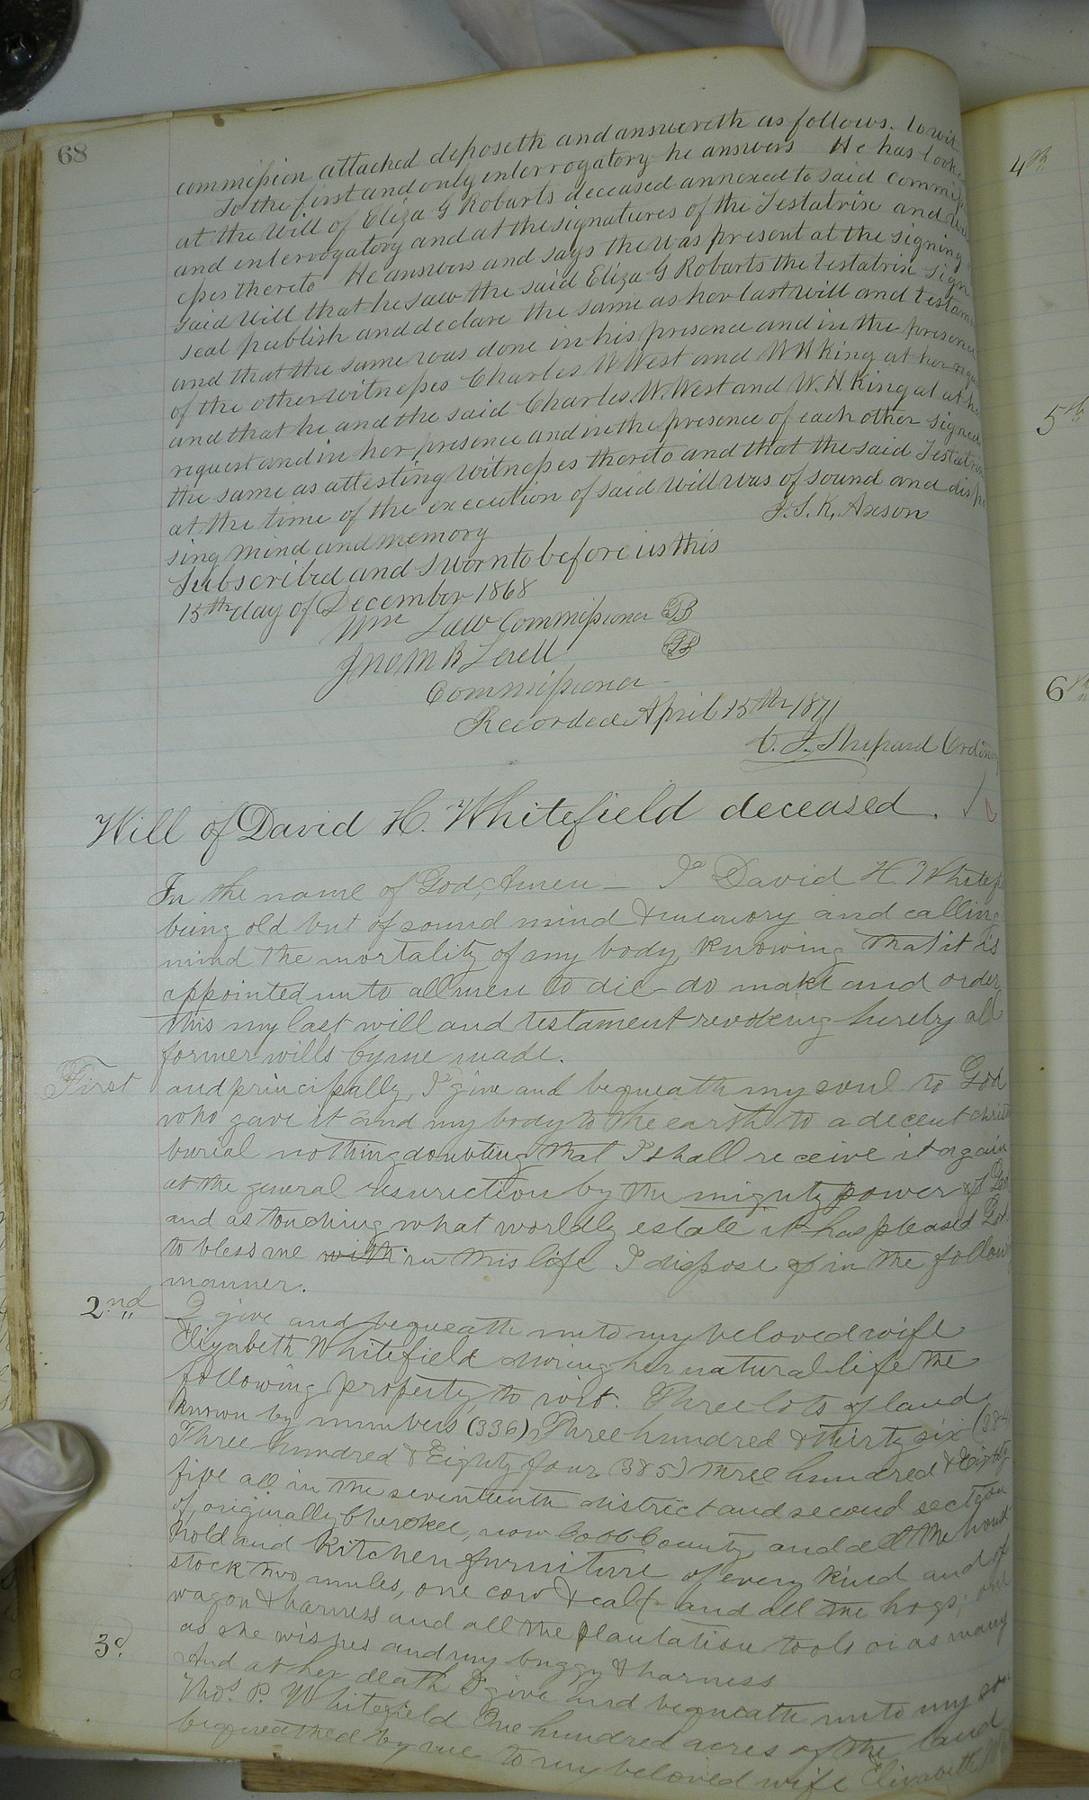 68
commission attached deposeth and answereth as follows. Towit
To the first and only interrogatory he answers He has looked
at the Will of Eliza G Robarts deceased annexed to said Commiss
and interrogatory and at the signatures of the Testatrix and Witn
esses thereto He answers and says the was present at the signing
said Will that he saw the said Eliza G Robarts the testatrix sign
seal publish and declare the same as her last Will and testam
and that the same was done in his presence and in the presence
of the other witnesses Charles W West and W H King at her requ
and that he and the said Charles. W. West and W. H. King at at he
request and in her presence and in the presence of each other signed
the same as attesting Witnesses thereto and that the said Testatrix
at the time of the execution of said Will was of sound and dispo
sing Mind and memory
I. S. K. Axson
Subscribed and Sworn to before us this
15th day of December 1868
Wm Law Commissioner
Jno M B
Commissioner
Recorded April 15th 1871
Shepard Ordinary
Will of David H. Whitefield deceased.
In the name of God, Amen - I David H Whitef
being old but of sound mind & memory and calling
mind the mortality of my body knowing that it is
appointed unto all men to die - do make and order
this my last will and testament revoking hereby all
former wills by me made.
First and principally, I give and bequeath my soul to God
who gave it and my body to the earth to a decent christ
burial nothing doubting that I shall receive it again
at the general resurrection by the mighty power of God
and as touching what worldly estate it has pleased God
to bless me with in this life I dispose of in the follow
manner.
2.nd I give and bequeath unto my beloved wife
Elizabeth Whitefield during her natural life the
following property, to wit. Three lots of land
known by numbers (336) Three hundred & thirty six (384
Three hundred & Eighty four (385) three hundred & Eighty
five all in the seventeenth district and second section
of, originally Cherokee, now Cobb County and all the hous
hold and Kitchen furniture of every kind and of
stock two mules, one cow & calf and all the hogs, one
wagon & harness and all the plantation tools or as many
as she wishes and my buggy & harness
3d. And at her death I give and bequeath unto my son
Thos. P. Whitefield One hundred acres of the land
bequeathed by me to my beloved wife Elizabeth
4th
5th
6th